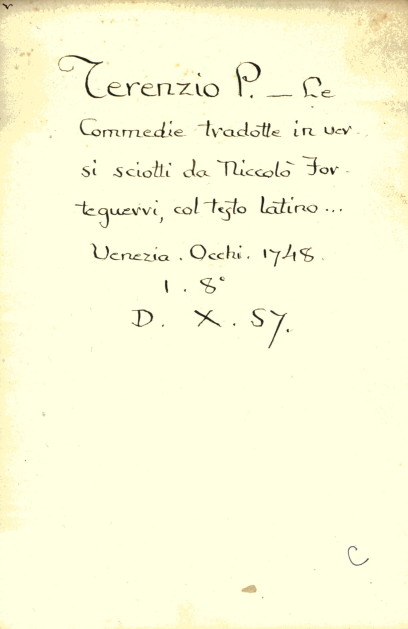 Terenzio P. — Le
Commedie tradotte in ver-
si sciotti da Niccolò For-
teguerri, col testo latino...
Venezia. Occhi. 1748.
1. 8°
D. X. 57.
C